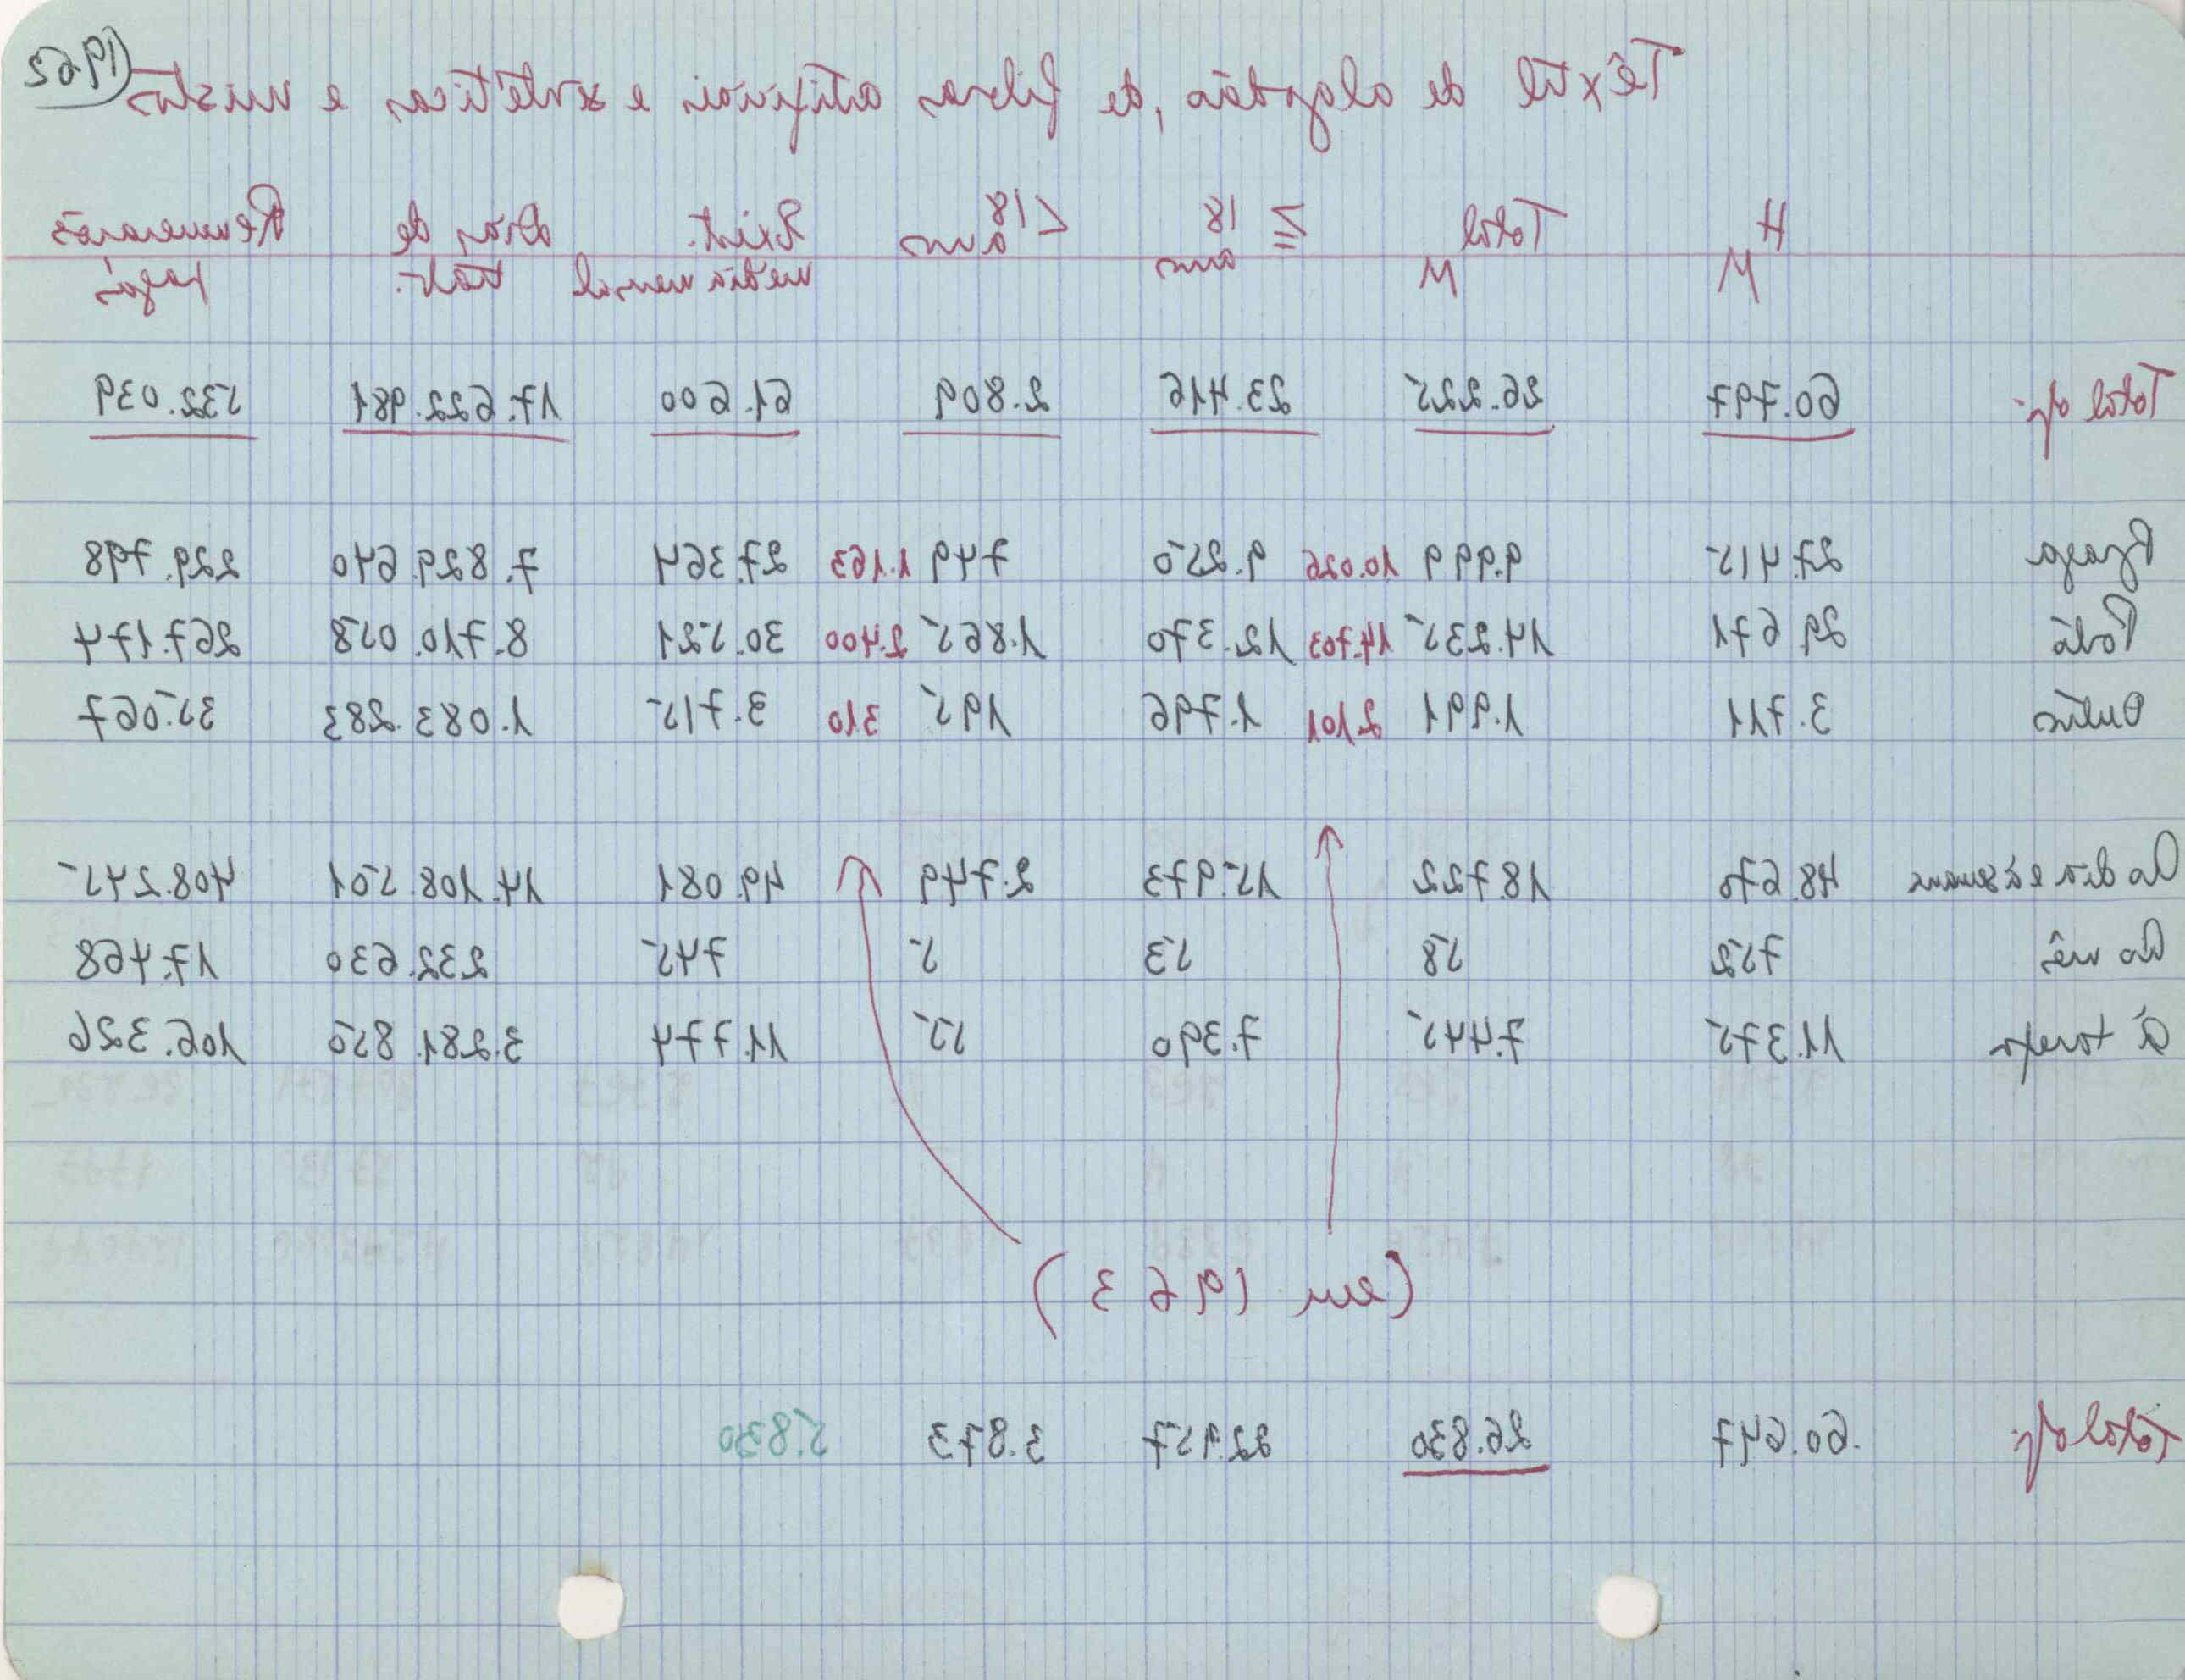 Têxtil de algodão, de fibras artificiais e sintéticas e mistos (1962
H Total ≥ 18 <18 Exist. dias de Remunerações
M M anos anos média mensal trab. pagas
Total gr: 60.797 26.225 23.416 2.809 61.600 17.622.981 532.039
Braga 27.415 9.999 10.026 9.250 749 1.163 27.364 7.829.640 229.798
Porto 29.671 14.235 14.703 12.370 1.865 2.400 30.521 8.710.058 267.174
Outros 3.711 1.991 2.101 1.796 195 310 3.715 1.083.283 35.067
Ao dia e à semana 48.670 18.722 15.973 2.749 49.081 14.108.501 408.245
Ao mês 752 58 53 5 745 232.630 17.468
À tarefa 11.375 7.445 7.390 55 11.774 3.281.850 106.326
(em 1963)
Total gr: 60.647 26.830 22.957 3.873 5.830